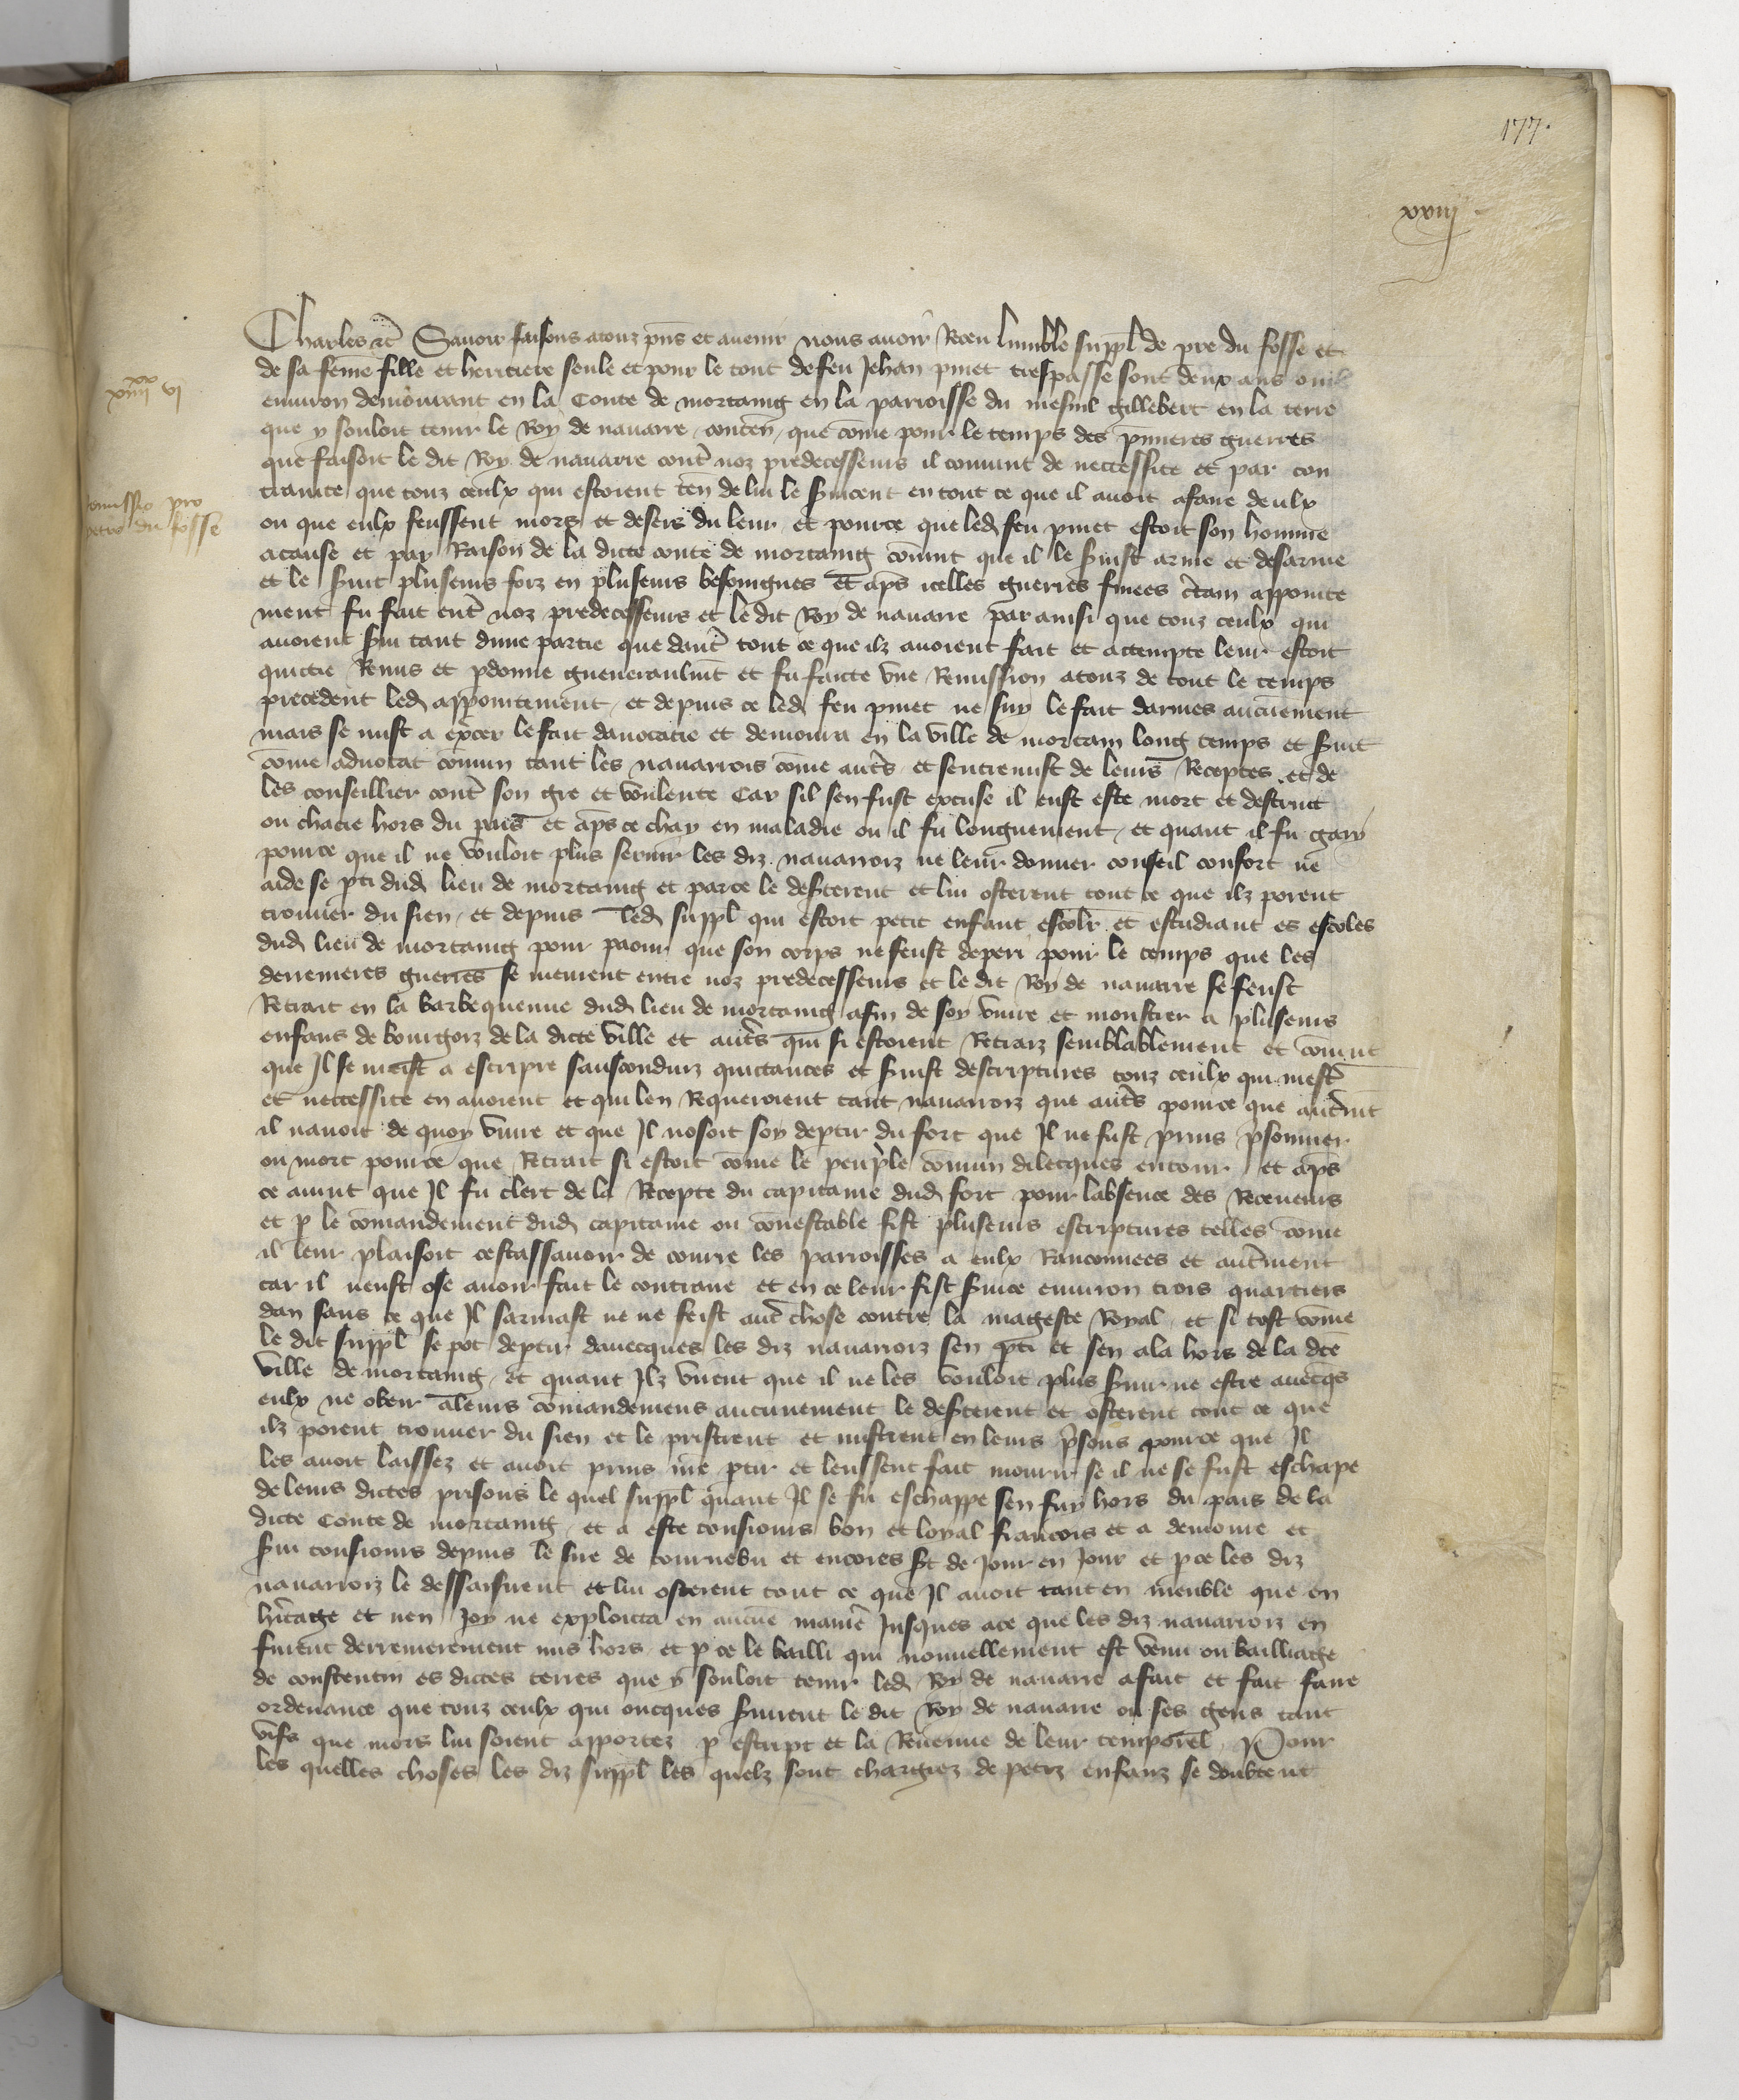 177.
xxiiij
Charles etc Savoir faisons a touz pñs et avenir nous avoir Receu lumble suppl de pre du fosse et
de sa feme fille et heritiere seule et pour le tout de feu Jehan pinet trespasse sont deux ans ou
xx
iiij vi
environ demourant en la Conte de mortaing en la parroisse du mesnil gillebert en la terre
que y souloit tenir le Roy de navarre conten que cõme pour le temps des pmieres guerres
que faisoit le dit Roy de navarre contre noz predecesseurs il convint de neccessite et par con
traincte que touz ceulx qui estoient ten de lui le svicent en tout ce que il avoit afaire deulx
Remissio pro
petro du fosse
ou que eulx feussent mors et desers du leur et pource que led feu pinet estoit son homme
a cause et par Raison de la dicte conte de mortaing cõvint que il le svist arme et desarme
et le svit pluseurs foiz en pluseurs besoingnes Et aps icelles guerres finees ctain appointe
ment fu fait entr noz predecesseurs et le dit Roy de navarre par ainsi que touz ceulx qui
avoient svi tant dune partie que dautr tout ce que ilz avoient fait et actempte leur estoit
quictie Remis et pdonne gueneraulmt et fu faicte une Remission a touz de tout le temps
precedent led appointement et depuis ce led feu pinet ne suy le fait darmes aucunement
mais se mist a excer le fait davocacie et demoura en la ville de mortaing long temps et svit
cõme advocat cõmun tant les navarrois cõme autrs et sentremist de leurs Receptes et de
les conseillier contr son gre et voulente Car sil sen fust excuse il eust este mort et destruit
ou chacie hors du pais et aps ce chay en maladie ou il fu longuement et quant il fu gary
pource que il ne vouloit plus servir les diz navarroiz ne leur donner conseil confort ne
aide se pti dud lieu de mortaing et parce le deserterent et lui osterent tout ce que ilz porent
trouver du sien et depuis led suppl qui estoit petit enfant escolr et estudiant es escoles
dud lieu de mortaing pour paour que son corps ne feust deperi pour le temps que les
derrenieres guerres se meurent entre noz predecesseurs et le dit Roy de navarre se feust
Retrait en la barbequenne dud lieu de mortaing afin de soy vivre et monstrer a pluseurs
enfans de bourgoiz de la dicte ville et autrs qui si estoient Retraiz semblablement et cõvint
que Il se meist a escripre saufconduiz quictances et svist descriptures touz ceulx qui mestr
et neccessite en avoient et qui len Requeroient tant navarroiz que autrs pource que autrmt
il navoit de quoy vivre et que Il nosoit soy deptir du fort que Il ne fust prins psonnier
ou mort pource que Retrait si estoit cõme le peuple cõmun dilecques entour et aps
ce avint que Il fu clerc de la Recepte du capitaine dud fort pour labsence des Receveurs
et p le cõmandement dud capitaine ou cõnestable fist pluseurs escriptures telles cõme
il leur plaisoit cestassavoir de courre les parroisses a eulx Ranconnees et autrment
car il neust ose avoir fait le contraire et en ce leur fist svice environ trois quartiers
dan sans ce que Il sarmast ne ne feist autr chose contre la mageste Royal et si tost cõme
le dit suppl se pot deptir davecques les diz navarroiz sen pti et sen ala hors de la dce
ville de mortaing et quant Ilz virent que il ne les vouloit plus svir ne estre avecqs
eulx ne obeir a leurs cõmandemens aucunement le deserterent et osterent tout ce que
ilz porent trouver du sien et le pristrent et mistrent en leurs psons pource que Il
les avoit laissez et avoit prins nre ptie et leussent fait mourir se il ne se fust eschape
de leurs dictes prisons le quel suppl quant Il se fu eschappe sen fuy hors du pais de la
dicte Conte de mortaing et a este tousiours bon et loyal francois et a demoure et
svi tousiours depuis le sire de tournebu et encores st de jour en jour et p ce les diz
navarroiz le dessaisirent et lui osterent tout ce que Il avoit tant en meuble que en
hitage et nen joy ne exploicta en aucune manire Jusques a ce que les diz navarroiz en
furent derrenierement mis hors et p ce le bailli qui nouvellement est venu ou bailliage
de constentin es dictes terres que y souloit tenir led Roy de navarre a fait et fait faire
ordenance que touz ceulx qui oncques svirent le dit Roy de navarre ou ses gens tant
vifs que mors lui soient apportez p escript et la Revenue de leur temporel Pour
les quelles choses les diz suppl les quelz sont chargiez de petiz enfanz se doubtent